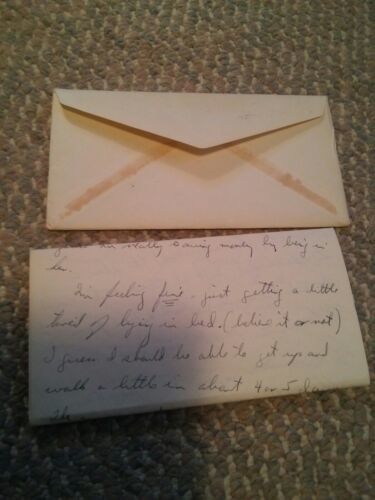 I'm really saving money by being in
I'm feeling fine - just getting a little
tired of lying in bed. (believe it or not)
I guess I should be able to get up and
walk a little in about 4 or 5 days
The